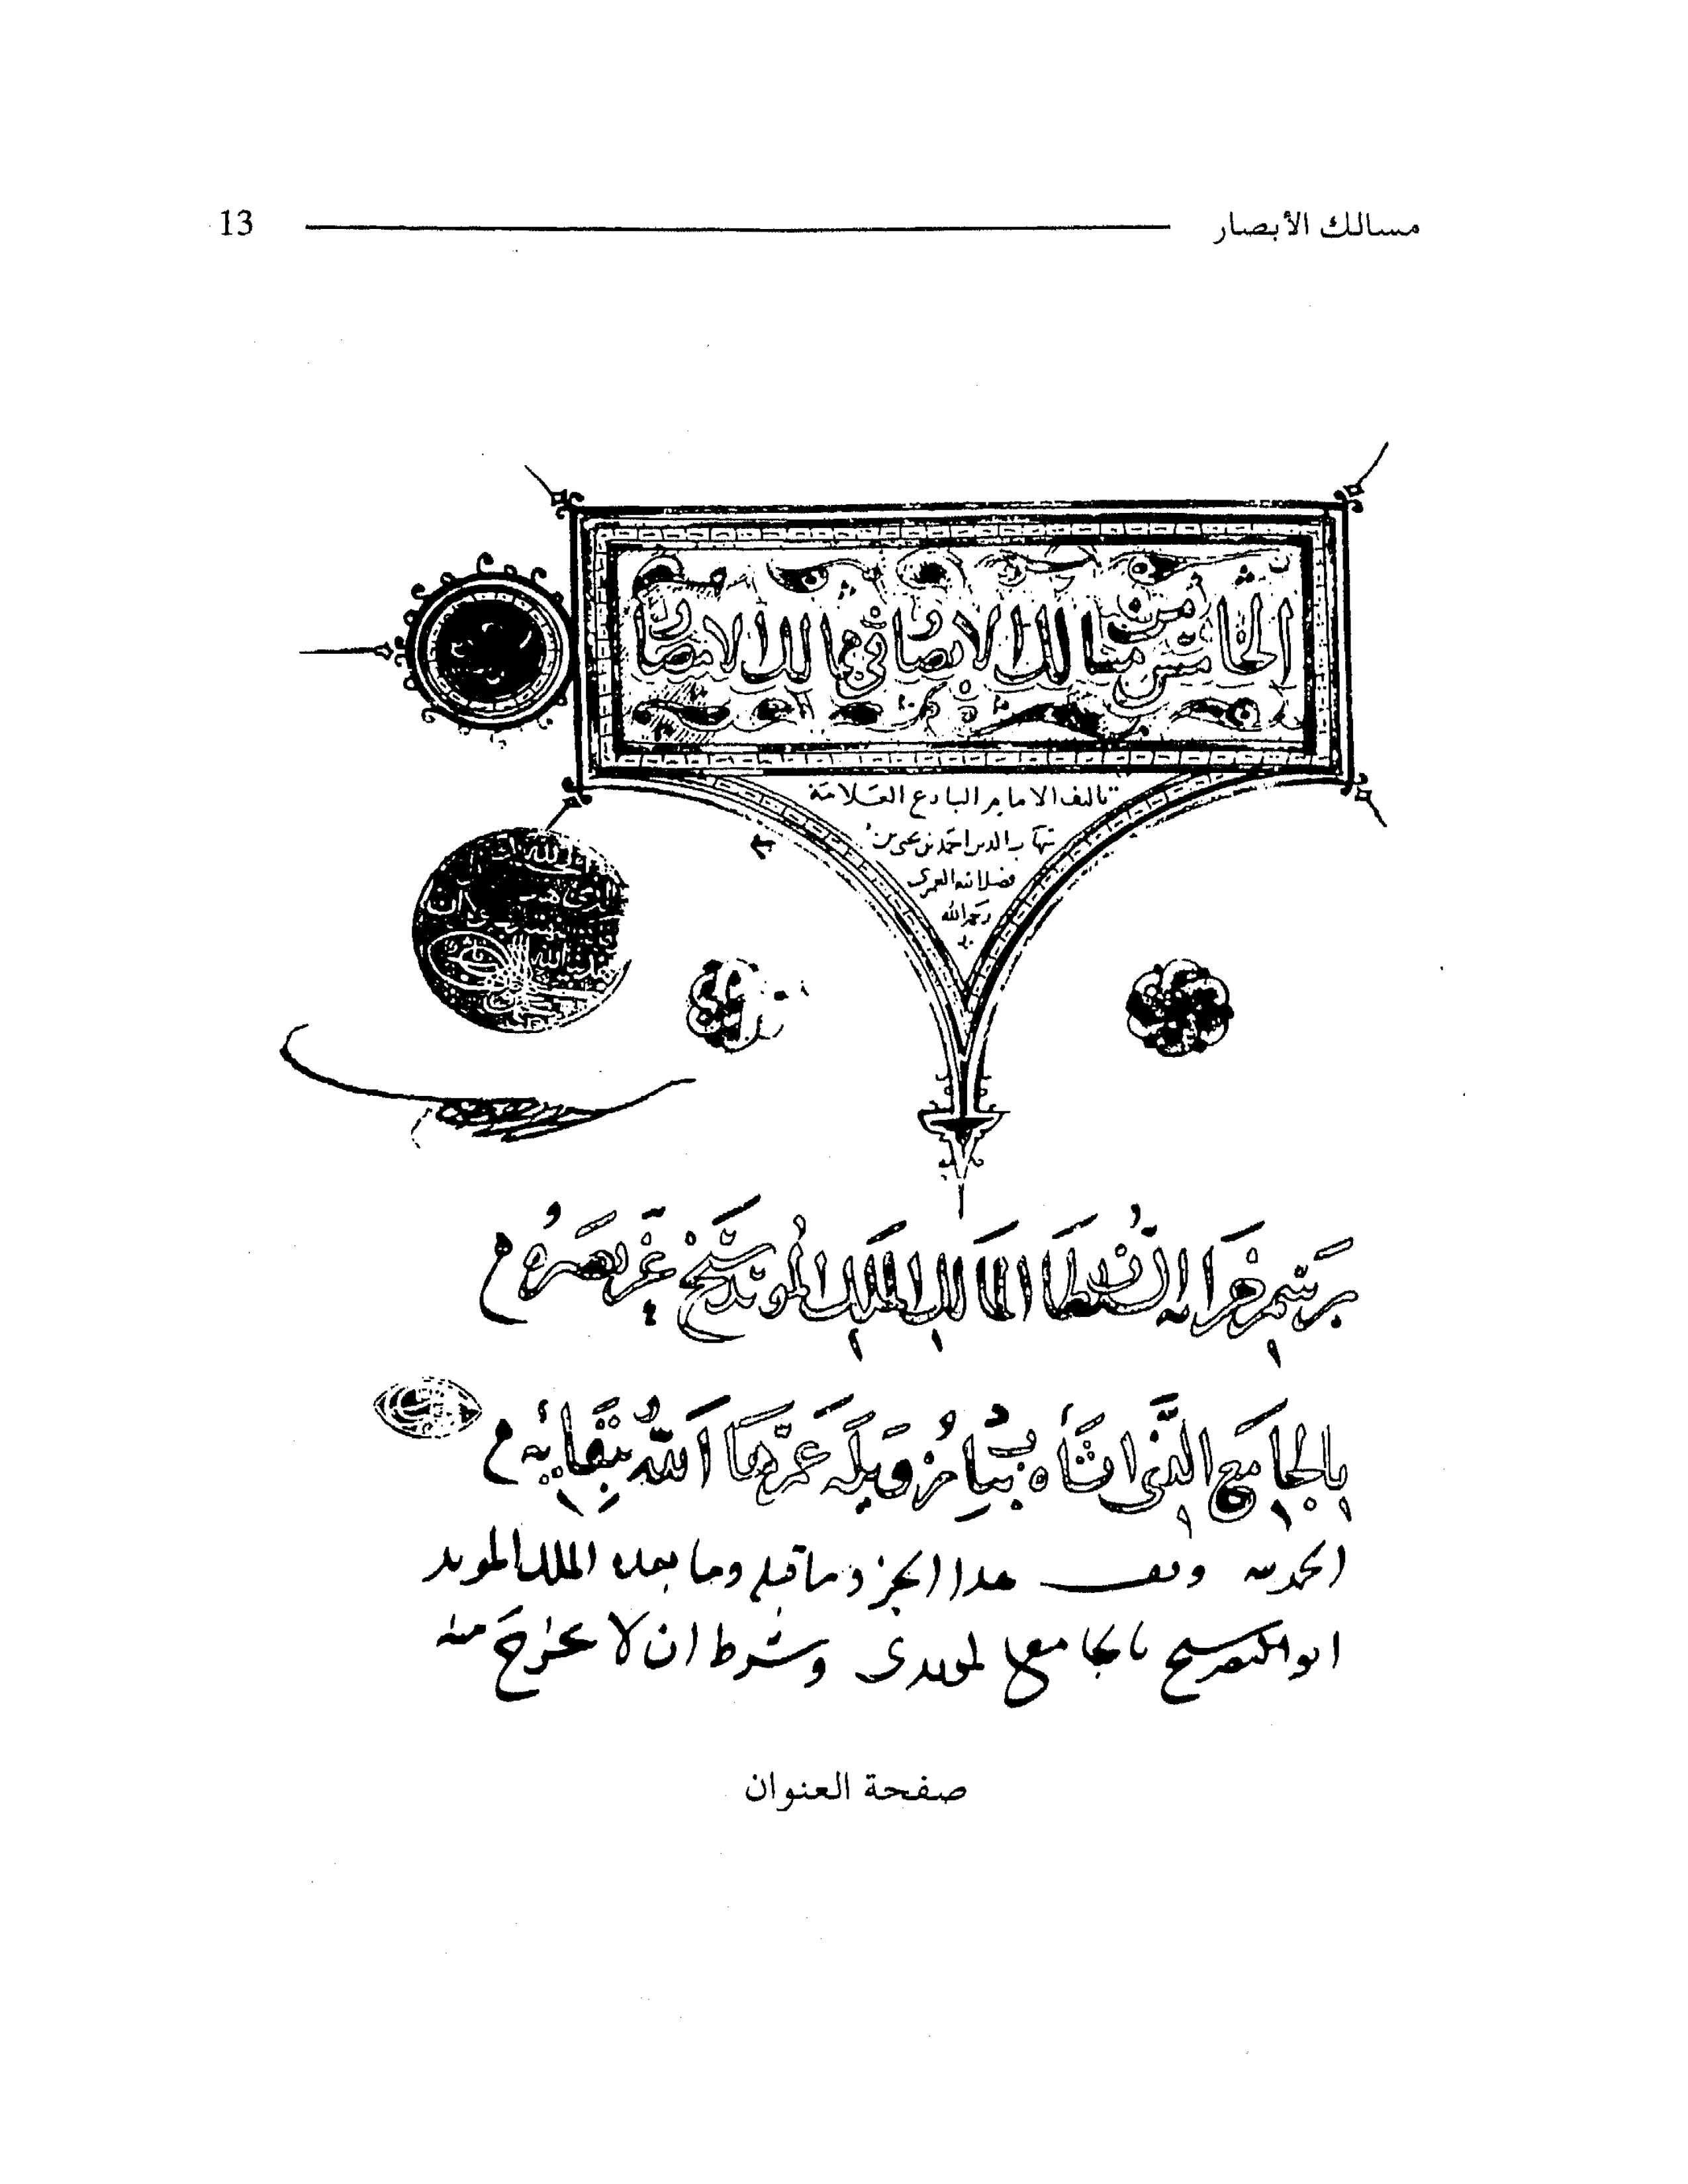 مسالك الأبصار 13
الخامس من مسالك الابصار في ممالك الامصار
تاليف الامام البارع العلامة
شهاب الدين احمد بن يحيى بن
فضل الله العمري
رحمه الله
برسم خزانة السلطان المالك الملك المويد شيخ عز نصره
بالجامع الذي انشاه بباب زويلة عمرها الله ببقايه
الحمد لله وقف هدا الجز وما قبله وما بعده الملك المويد
ابو النصر شيخ بالجامع المويدى وشرط ان لا يخرج منه
صفحة العنوان